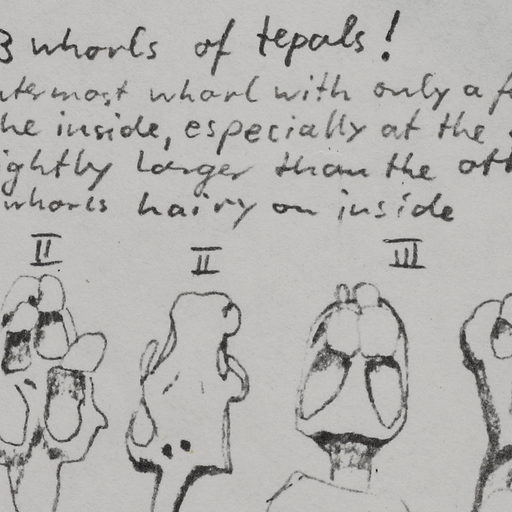 3 whorls of tepals!
outermost whorl with only a f
the inside, especially at the
ightly larger than the oth
whorls hairy on inside
II II III